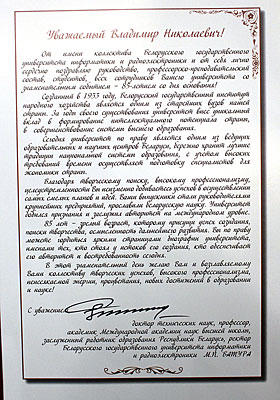 Уважаемый Владимир Николаевич!
От имени коллектива Белорусского государственного
университета информатики и радиоэлектроники и от себя лично
сердечно поздравляю руководство, профессорско-преподавательский
состав, студентов, всех сотрудников Вашего университета со
знаменательным событием – 85-летием со дня основания!
Созданный в 1933 году, Белорусский государственный институт
народного хозяйства является одним из старейших вузов нашей
страны. За годы своего существования университет внес уникальный
вклад в формирование интеллектуального потенциала страны,
в совершенствование системы высшего образования.
Сегодня университет по праву является одним из ведущих
образовательных и научных центров Беларуси, бережно хранит лучшие
традиции национальной системы образования, с учетом высоких
требований времени осуществляет подготовку специалистов для
экономики страны.
Благодаря творческому поиску, высокому профессионализму,
целеустремленности Вы неизменно добиваетесь успехов в осуществлении
самых смелых планов и идей. Ваши выпускники стали руководителями
крупнейших предприятий, прославили белорусскую науку. Университет
добился признания и заслужил авторитет на международном уровне.
85 лет – зрелый возраст, которому присущи успех созидания,
поиски творчества, осмысленность дальнейшего развития. Вы по праву
можете гордиться яркими страницами биографии университета,
именами тех, кто стоял у истоков его создания, кто обеспечивает
его авторитет и востребованность сегодня.
В этот знаменательный день желаю Вам и возглавляемому
Вами коллективу творческих успехов, высокого профессионализма,
неиссякаемой энергии, процветания, новых достижений в образовании
и науке!
С уважением
доктор технических наук, профессор,
академик Международной академии наук высшей школы,
заслуженный работник образования Республики Беларусь, ректор
Белорусского государственного университета информатики
и радиоэлектроники М.П. БАТУРА